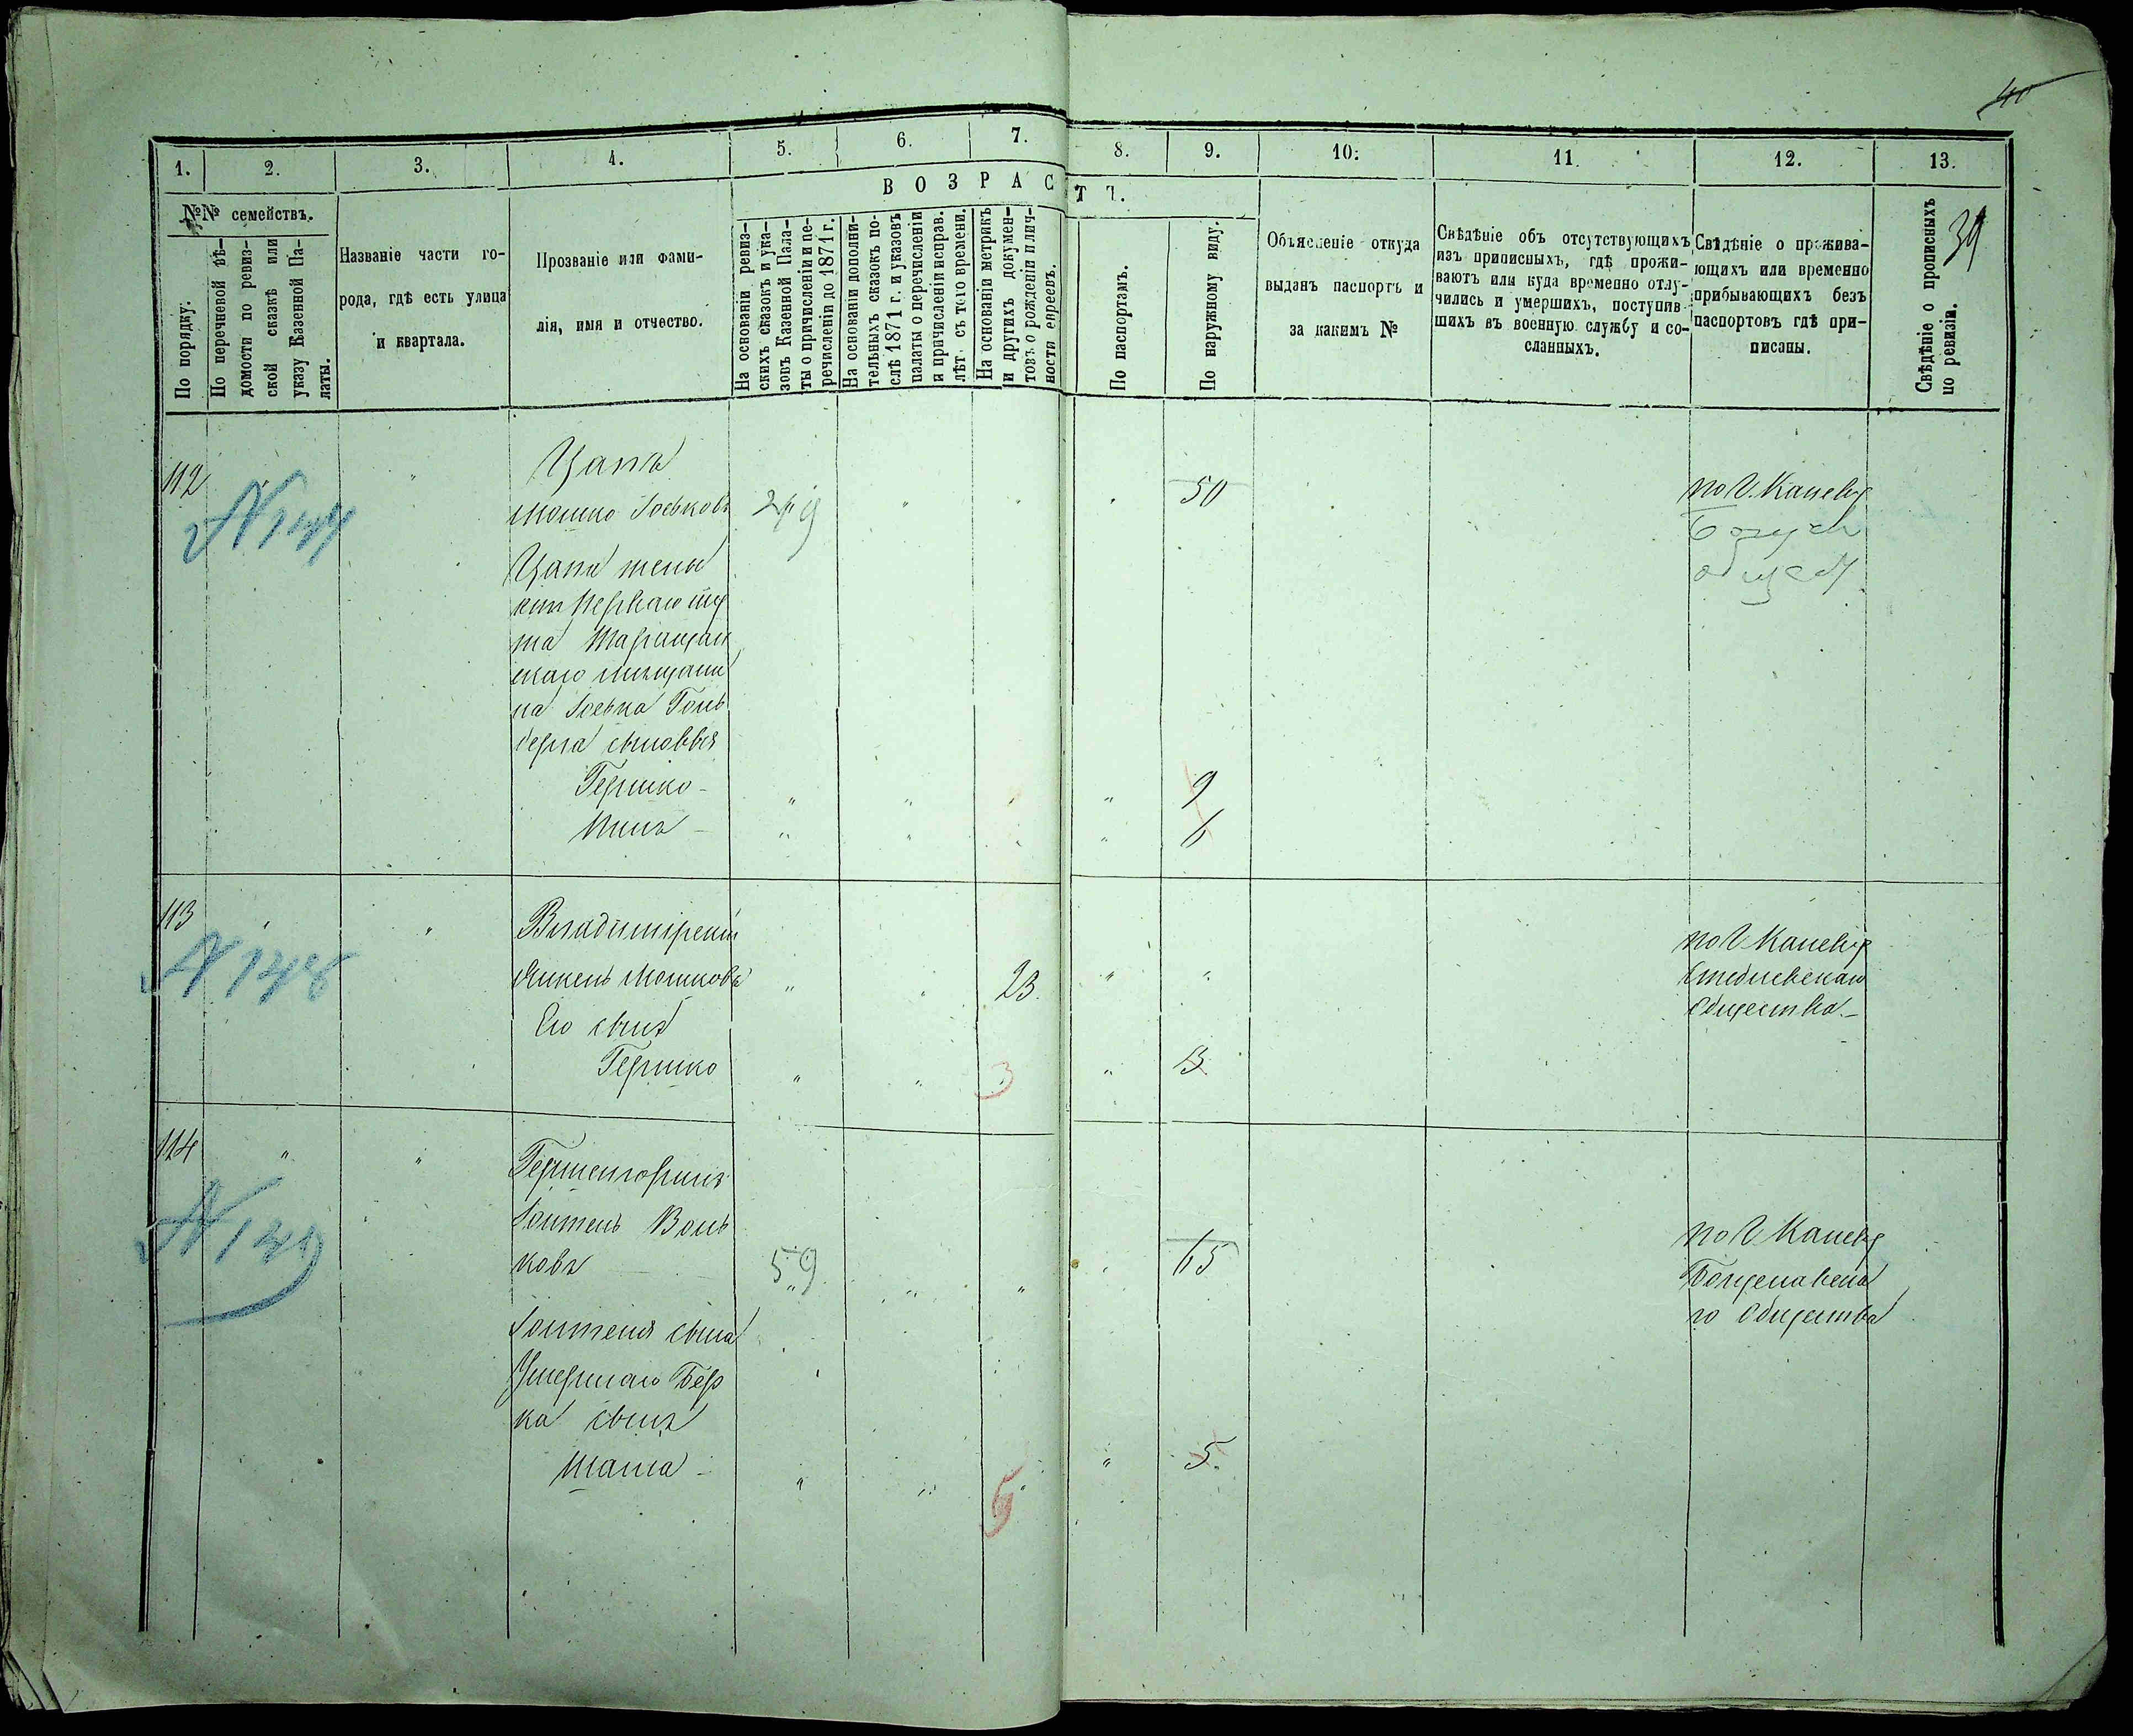 40
39
1. 2. 3. 4. 5. 6. 7. 8. 9. 10. 11. 12. 13.
№№ семействъ.
По порядку.
По перечневой вѣ-
домости по ревиз-
ской сказкѣ или
указу Казенной Па-
латы.
Названіе части го-
рода, гдѣ есть улица
и квартала.
Прозваніе или фами-
лія, имя и отчество.
ВОЗРАСТЪ.
На основаніи ревиз-
скихъ сказокъ и ука-
зовъ Казенной Пала-
ты о причисленіи и пе-
речисленіи до 1871 г.
На основаніи дополни-
тельныхъ сказокъ по-
слѣ 1871 г. и указовъ
палаты о перечисленіи
и причисленіи исправ.
лѣт. съ того времени.
На основаніи метрикъ
и другихъ докумен-
товъ о рожденіи и лич-
ности евреевъ.
По паспортамъ.
По наружному виду.
Объясненіе откуда
выданъ паспортъ и
за какимъ №
Свѣдѣніе объ отсутствующихъ
изъ приписныхъ, гдѣ прожи-
ваютъ или куда временно отлу-
чились и умершихъ, поступив-
шихъ въ военную службу и со-
сланныхъ.
Свѣдѣніе о прожива-
ющихъ или временно
прибывающихъ безъ
паспортовъ гдѣ при-
писаны.
Свѣдѣніе о прописныхъ
по ревизіи.
112
Цапъ
Мошко Іоськовъ 50 по г. Каневу
Богусл
общест
Цапа жены
отъ перваго му
жа Таращан
скаго мѣщани
на Іоська Голь
берга сыновья
Гершко 9
Пинъ 6
113
Владимірскій по г. Каневу
Янкель Мошковъ 23 Степневскаго
Его сынъ Общества.
Гершко 3 3
114
Гершенгоринъ
Зонтель Воль по г. Каневу
ковъ 59 65 Богуславска
го Общества
Зонтеля сына
Умершаго Бер
ка сынъ
Шапса 5 5